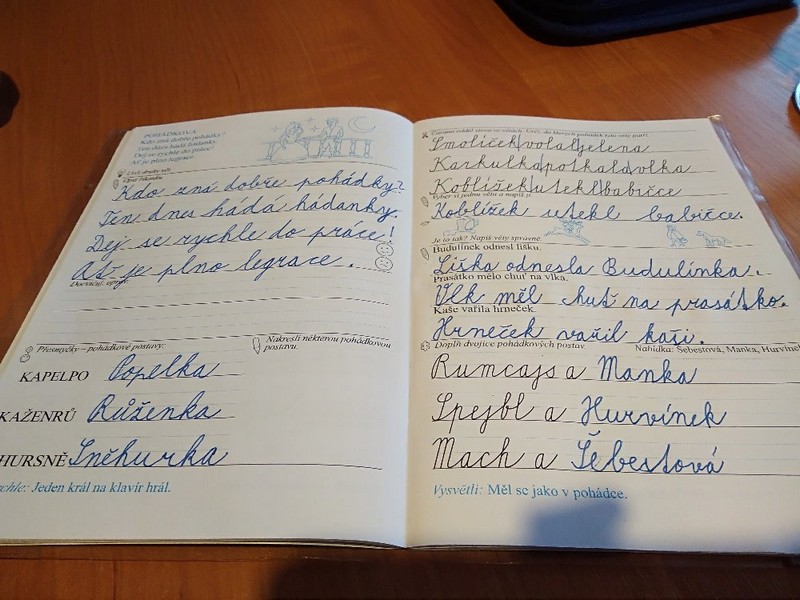 POHÁDKOVÁ
Kdo zná dobře pohádky?
Ten dnes hádá hádanky.
Dej se rychle do práce!
Ať je plno legrace.
Kdo zná dobře pohádky?
Ten dnes hádá hádanky.
Dej se rychle do práce!
Ať je plno legrace.
Přesmyčky – pohádkové postavy.
Nakresli některou pohádkovou postavu.
KAPELPO Popelka
KAŽENRŮ Růženka
HURSNĚ Sněhurka
Jeden král na klavír hrál.
Smolíček|volal|jelena
Karkulka|potkala|vlka
Koblížek|utekl|babičce
Vyber si jednu větu a napiš ji.
Koblížek utekl babičce.
Je to tak? Napiš věty správně.
Budulínek odnesl lišku.
Liška odnesla Budulínka.
Prasátko mělo chuť na vlka.
Vlk měl chuť na prasátko.
Kaše vařila hrneček.
Hrneček vařil kaši.
Doplň dvojice pohádkových postav.
Nabídka: Šebestová, Manka, Hurvínek
Rumcajs a Manka
Spejbl a Hurvínek
Mach a Šebestová
Vysvětli: Měl se jako v pohádce.